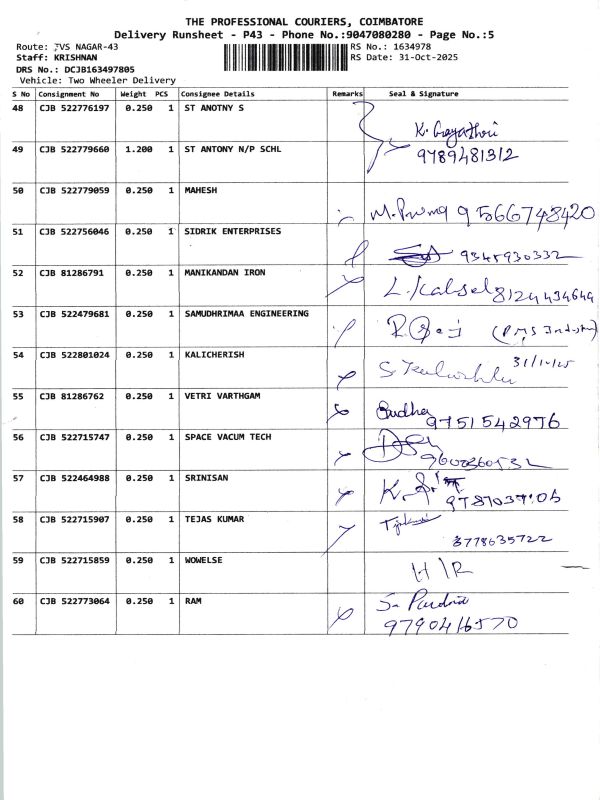 THE PROFESSIONAL COURIERS, COIMBATORE
Delivery Runsheet - P43 - Phone No.:9047080280 - Page No.:5
Route: TVS NAGAR-43 RS No.: 1634978
Staff: KRISHNAN RS Date: 31-Oct-2025
DRS No.: DCJB163497805
Vehicle: Two Wheeler Delivery
S No Consignment No Weight PCS Consignee Details Remarks Seal & Signature
48 CJB 522776197 0.250 1 ST ANOTNY S
K. Gayathri
49 CJB 522779660 1.200 1 ST ANTONY N/P SCHL 9789481312
50 CJB 522779059 0.250 1 MAHESH
9566748420
51 CJB 522756046 0.250 1 SIDRIK ENTERPRISES
9345930332
52 CJB 81286791 0.250 1 MANIKANDAN IRON
8124434644
53 CJB 522479681 0.250 1 SAMUDHRIMAA ENGINEERING
54 CJB 522801024 0.250 1 KALICHERISH
55 CJB 81286762 0.250 1 VETRI VARTHGAM
Sudha
9751542976
56 CJB 522715747 0.250 1 SPACE VACUM TECH
57 CJB 522464988 0.250 1 SRINISAN
58 CJB 522715907 0.250 1 TEJAS KUMAR
8778635722
59 CJB 522715859 0.250 1 WOWELSE
H/R
60 CJB 522773064 0.250 1 RAM
9790416570